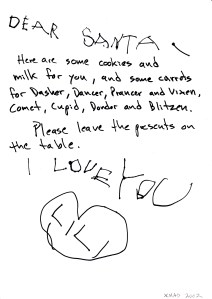 DEAR SANTA,
Here are some cookies and
milk for you, and some carrots
for Dasher, Dancer, Prancer and Vixen,
Comet, Cupid, Dondor and Blitzen.
Please leave the presents on
the table.
I LOVE YOU
LILI
XMAS 2002